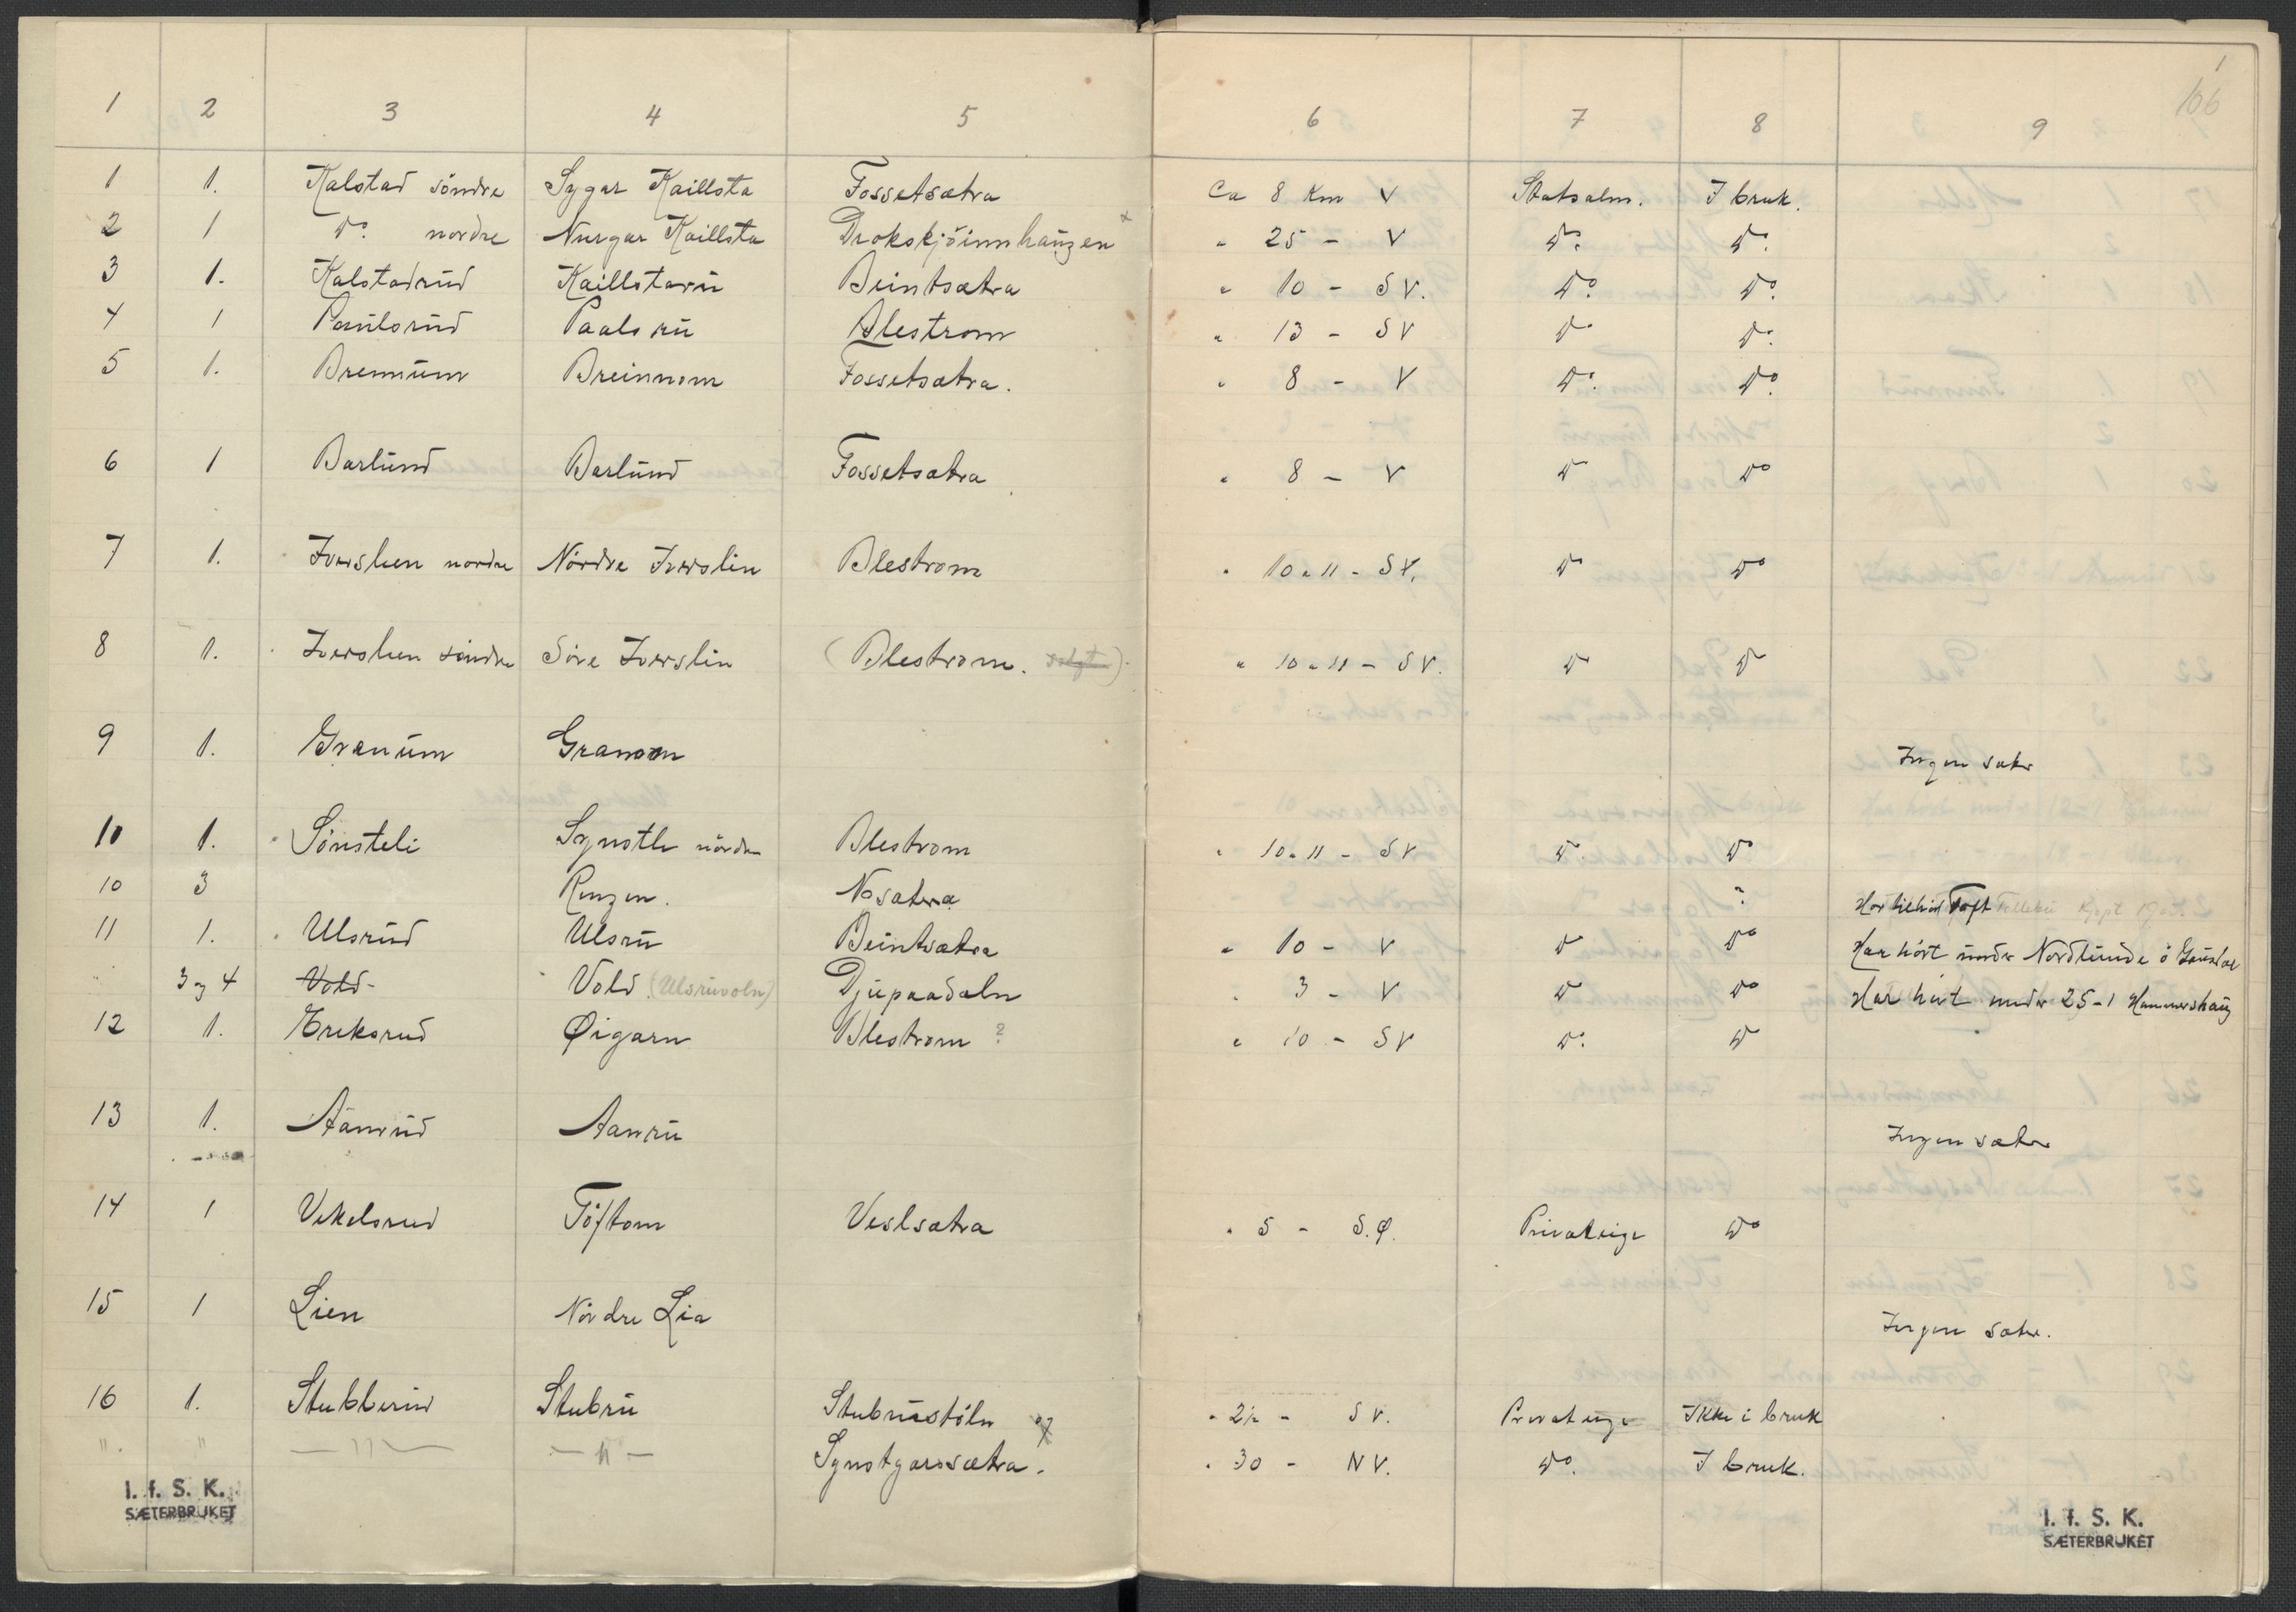 1 2 3 4 5 6 7 8 9 1
106
1 1. Kalstad söndre Sygar Kaillsta Fossetsætra Ca 8 Km V Statsalm. I bruk.
2 1 Do. nordre Nurgar Kaillsta Drokskjöinnhaugen x " 25 - V Do. Do.
3 1. Kalstadrud Kaillstaru Beintsætra " 10 - SV. Do. Do.
4 1 Paulsrud Paalsru Blestrom " 13 - SV Do Do.
5 1. Brennum Breinnom Fossetsætra. " 8 - V Do. Do.
6 1 Barlund Barlund Fossetsætra " 8 - V Do Do
7 1. Iverslien nordre Nördre Iverslin Blestrom " 10 a 11 - SV. Do Do
8 1. Iverslien söndre Söre Iverslin (Blestrom. solgt) " 10 a 11 - SV. Do Do
9 1. Granum Granom Ingen sæter
10 1. Sönsteli Synstli nördre Blestrom " 10 a 11 - SV Do. Do
10 3 Ringen. Nosætra ? Har tilhört Toft
11 1. Ulsrud Ulsru Beintsætra " 10 - V Do Do Har hört under Nordlunde ö Gausdal
" 3 og 4 Vold Vold (Ulsruvoln) Djupaadaln " 3 - V Do Do Har hört under 25-1 Hammershaug
12 1. Eriksrud Øigarn Blestrom ? " 10 - SV Do. Do
13 1. Aanrud Aanru Ingen sæter
14 1 Vekelsrud Töftom Veslsætra " 5 - S.Ø. Privateige Do
15 1 Lien Nördre Lia Ingen sæter.
16 1. Stubberud Stubru Stubrustöln " 2½ - SV. Privateige Ikke i bruk
" " — " — — " — Synstgarssætra. x " 30 - NV. Do. I bruk.
I. f. S. K.
SÆTERBRUKET
I. f. S. K.
SÆTERBRUKET